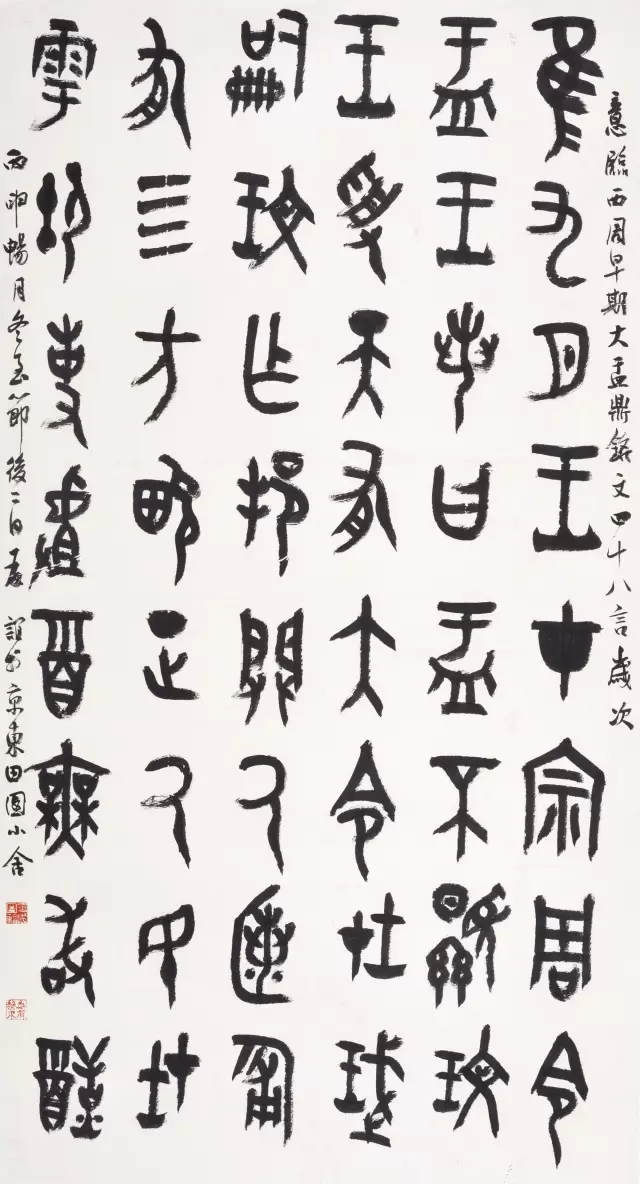 意臨西周早期大盂鼎銘文四十八言歲次
隹九月王才宗周令
盂王若曰盂不顯玟
王受天有大令在珷
王嗣玟乍邦闢厥匿匍
有四方畯正厥民在
雩御事䖒酒無敢酖
丙申暢月冬至節後二日 京東田園小舍